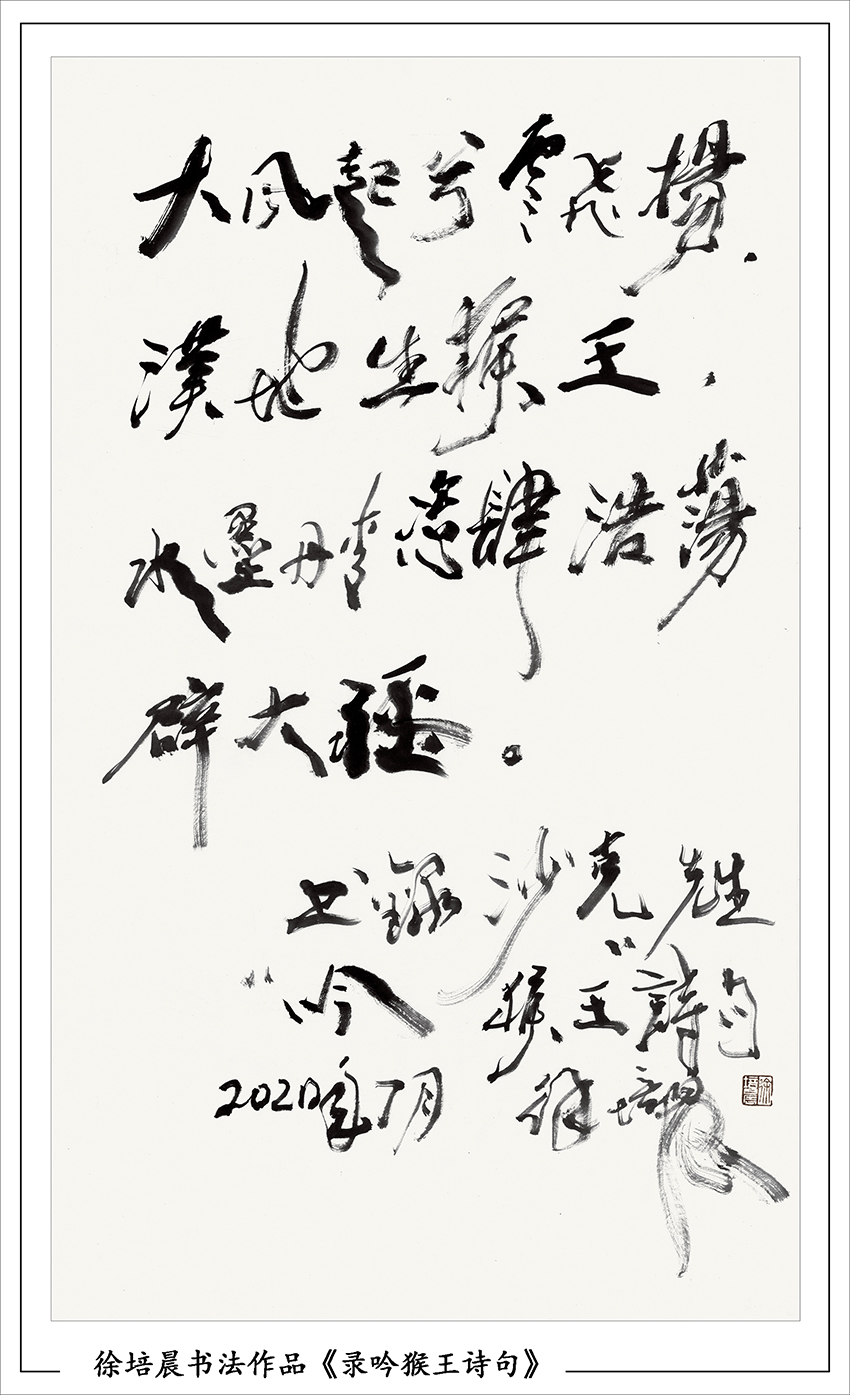 大风起兮雲飞揚.
漢地生猴王.
水墨丹青恣肆浩蕩
辟大。
书録沙克先生
“吟猴王”詩句
2020年7月 徐培晨
徐培晨
徐培晨书法作品《录吟猴王诗句》